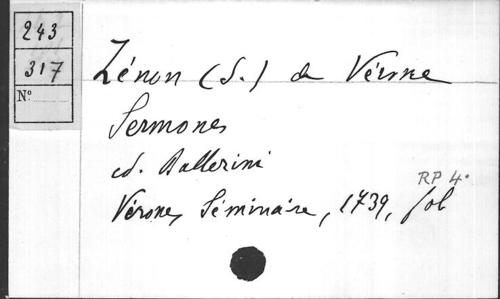 243
317
N°
Zénon (S.) de Vérone
Sermones
ed. Ballerini
RP 4.
Vérone, Séminaire, 1739, fol